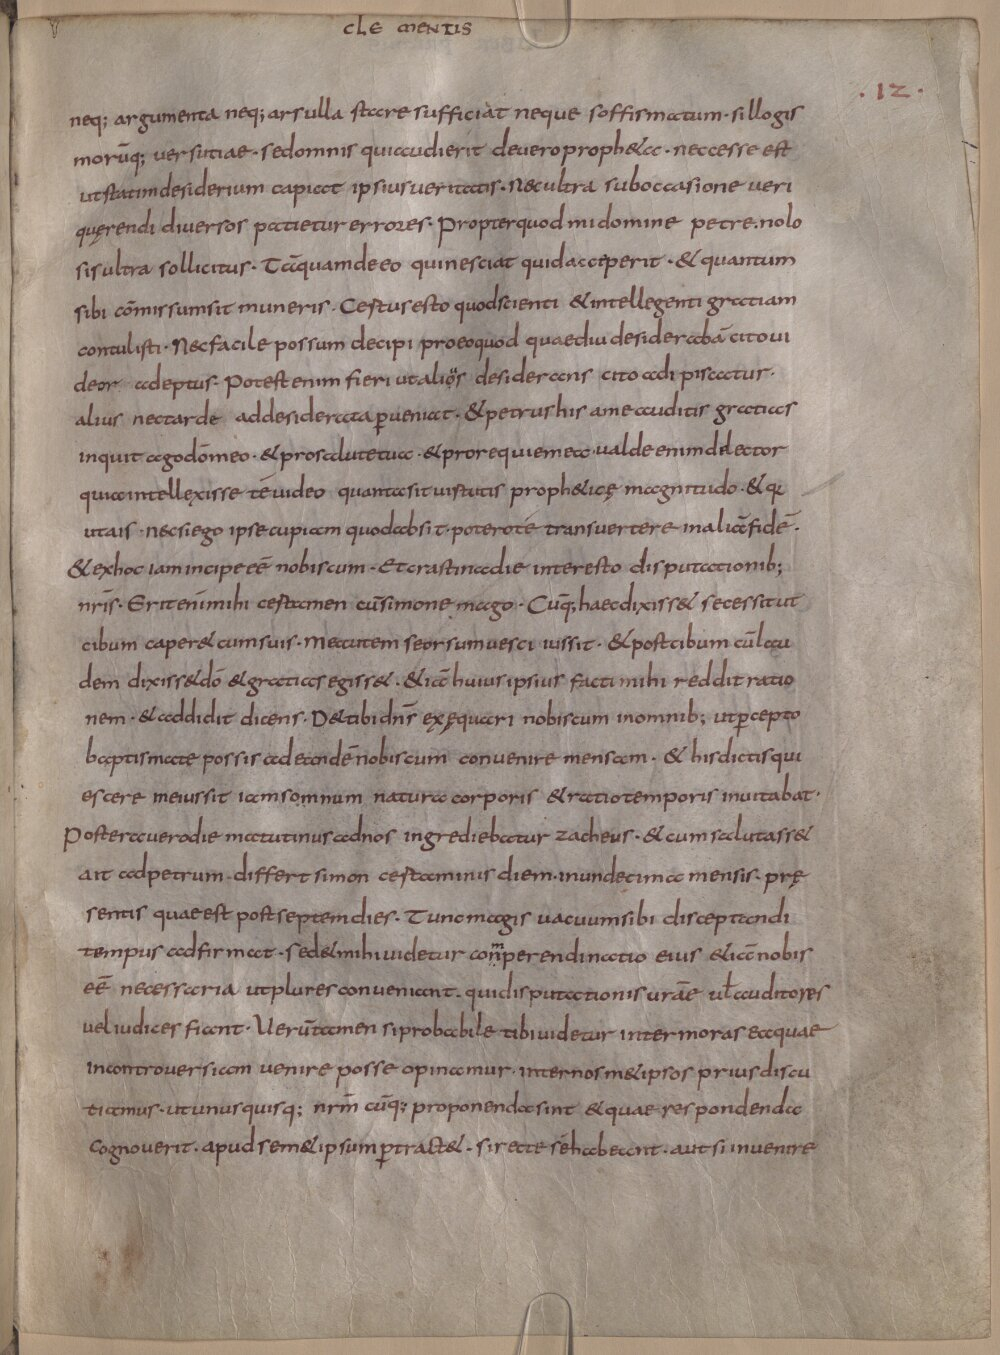 CLE MENTIS
.12.
neq; argumenta neq; ars ulla stare sufficiat neque soffismatum · sillogis
morūq; versutiae · sed omnis qui audierit de vero proph&a · neccesse est
ut statim desiderium capiat ipsius veritatis · Nec ultra sub occasione veri
quęrendi diversos patietur errores · Propter quod mi domine petre · nolo
sis ultra sollicitus · Tāquam de eo qui nesciat quid acceperit · & quantum
sibi cōmissum sit muneris · Certus esto quod scienti & intellegenti gratiam
contulisti · Nec facile possum decipi pro eo quod quae diu desiderabā cito vi
deor adeptus · Potest enim fieri ut alius desiderans cito adipiscatur ·
alius nec tarde ad desiderata ꝑveniat · & petrus his a me auditis gratias
inquit ago dōmeo · & pro salute tua · & pro requie mea · valde enim delector
quia intellexisse tē video quanta sit virtutis proph&icę magnitudo · & qr̄
ut ais · nec si ego ipse cupiam quod absit · potero te transvertere in aliā fidē ·
& ex hoc iam incipe eē nobiscum · Et crastina die interesto disputationib;
nr̄is · Erit enim mihi certamen cū simone mago · Cūq; haec dixiss& secessit ut
cibum caper& cum suis · Me autem seorsum vesci iussit · & post cibum cū lau
dem dixiss& dō & gratias egiss& · & iā huius ipsius facti mihi reddit ratio
nem · & addidit dicens · D& tibi dn̄s exęquari nobiscum in omnib; ut ꝑcepto
baptismate possis ad eandē nobiscum convenire mensam · & his dictis qui
escere me iussit iam somnum natura corporis & ratio temporis invitabat ·
Postera vero die matutinus ad nos ingrediebatur zacheus · & cum salutass&
ait ad petrum · differt simon certaminis diem · in undecima mensis prę
sentis quae est post septem dies · Tunc magis vacuum sibi disceptandi
tempus adfirmat · sed & mihi videtur comperendinatio eius & iā nobis
eē necessaria ut plures conveniant · qui disputationis vrāe vł auditores
vel iudices fiant · Verūtamen si probabile tibi videtur inter moras ea quae
in controversiam venire posse opinamur · inter nosm&ipsos prius discu
tiamus · ut unusquisq; nr̄m cūq; proponenda sint & quae respondenda
cognoverit · apud sem&ipsum ꝑtract& · si recte sē habeant · aut si invenire